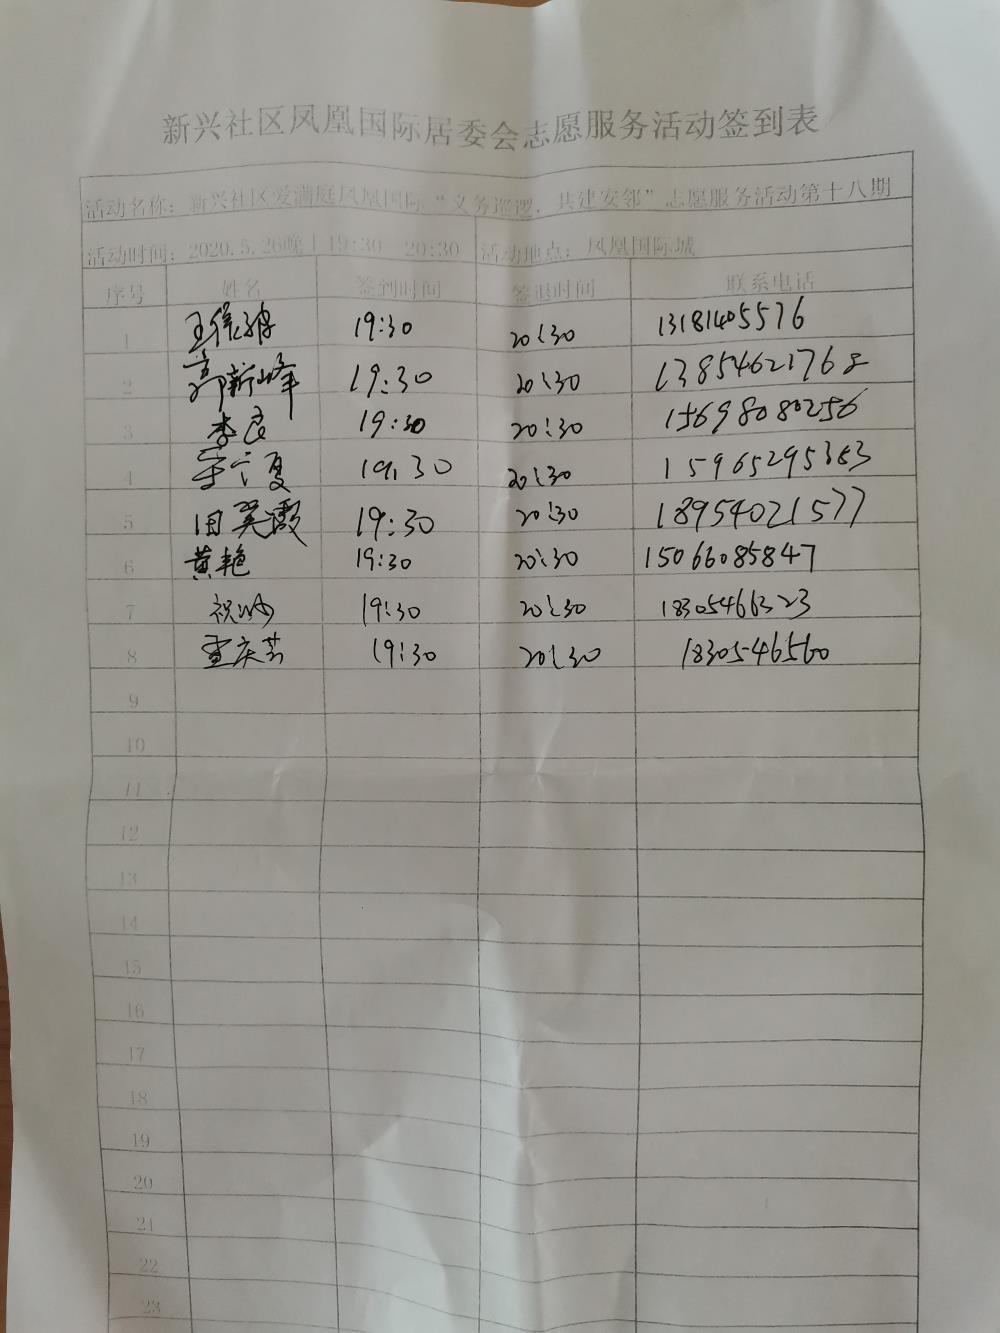 新兴社区凤凰国际居委会志愿服务活动签到表
活动名称：新兴社区爱满庭凤凰国际“义务巡逻，共建安邻”志愿服务活动第十八期
活动时间：2020.5.26晚上19:30—20:30 活动地点：凤凰国际城
序号 姓名 签到时间 签退时间 联系电话
1 19:30 20:30 13181405576
2 郭新峰 19:30 20:30 13854621768
3 李良 19:30 20:30 15698080256
4 19:30 20:30 15965295383
5 田翠霞 19:30 20:30 18954021577
6 黄艳 19:30 20:30 15066085847
7 19:30 20:30 18305466323
8 19:30 20:30 18305546560
9
10
11
12
13
14
15
16
17
18
19
20
21
22
23